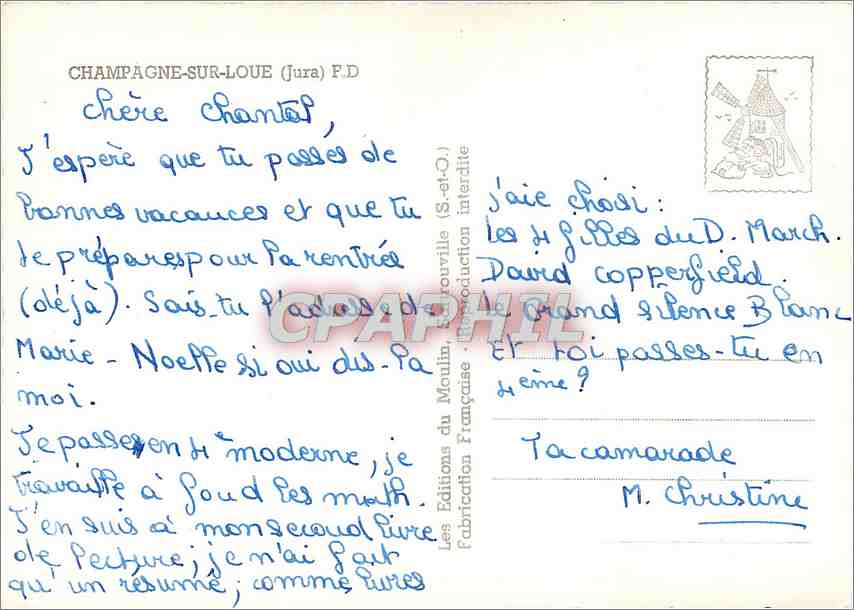 CHAMPAGNE-SUR-LOUE (Jura) F.D
Chère Chantal,
J'espère que tu passes de
bonnes vacances et que tu
te prépares pour la rentrée
(déjà). Sais-tu l'adresse de
Marie-Noelle si oui dis-la
moi.
Je passe en 4ème moderne, je
travaille à foud les math.
J'en suis à mon second livre
de lecture; je n'ai fait
qu'un résumé; comme livres
Les Editions du Moulin, Sartrouville (S.-et-O.)
Fabrication Française - Reproduction interdite
j'aie choisi :
Les 4 filles du D. March.
David Copperfield.
Le Grand silence Blanc
Et toi passes-tu en
4ème?
Ta camarade
M. Christine
CPAPHIL